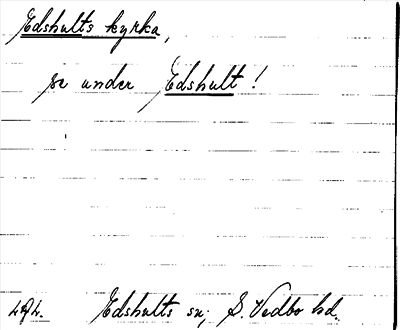 Edshults kyrka,
se under Edshult!
Edshults sn, S. Vedbo hd.